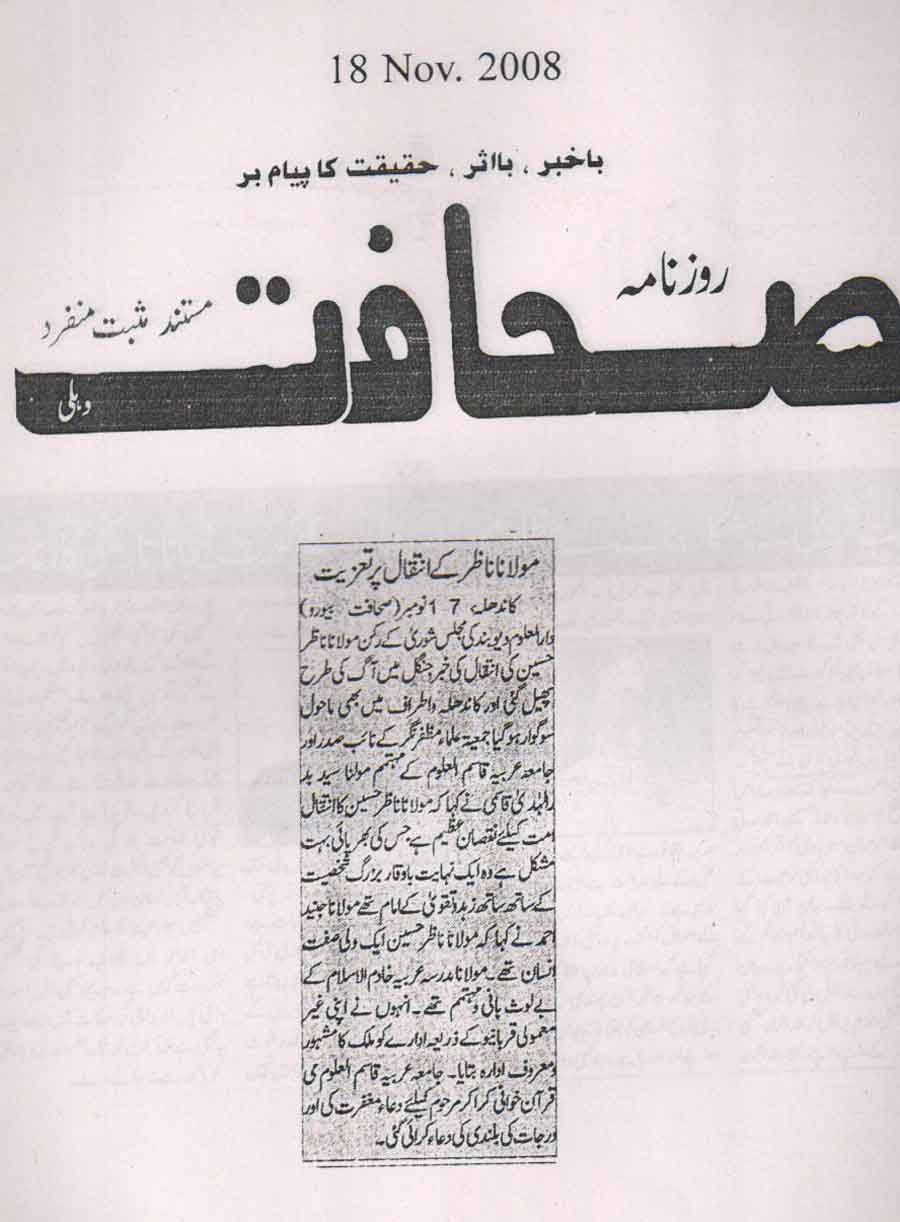 18 Nov. 2008
باخبر، بااثر، حقیقت کا پیام بر
روزنامہ
صحافت
مستند مثبت منفرد
دہلی
مولانا ناظر کے انتقال پر تعزیت
کاندھلہ، 17 نومبر (صحافت بیورو)
دارالعلوم دیوبند کی مجلس شوریٰ کے رکن مولانا ناظر
حسین کی انتقال کی خبر جنگل میں آگ کی طرح
پھیل گئی اور کاندھلہ واطراف میں بھی ماحول
سوگوار ہوگیا جمعیۃ علماء مظفرنگر کے نائب صدر اور
جامعہ عربیہ قاسم العلوم کے مہتمم مولنا سید بد
رالہدیٰ قاسمی نے کہا کہ مولانا ناظر حسین کا انتقال
امت کیلئے نقصان عظیم ہے جس کی بھرپائی بہت
مشکل ہے وہ ایک نہایت باوقار بزرگ شخصیت
کے ساتھ ساتھ زہد تقویٰ کے امام تھے مولانا جنید
احمد نے کہا کہ مولانا ناظر حسین ایک ولی صفت
انسان تھے۔ مولانا مدرسہ عربیہ خادم الاسلام کے
بے لوث بانی و مہتمم تھے۔ انہوں نے اپنی غیر
معمولی قربانیو کے ذریعہ ادارے کو ملک کا مشہور
ومعروف ادارہ بتایا۔ جامعہ عربیہ قاسم العلوم ی
قرآن خوانی کرا کر مرحوم کیلئے دعاء مغفرت کی اور
درجات کی بلندی کی دعاء کرائی گئی۔